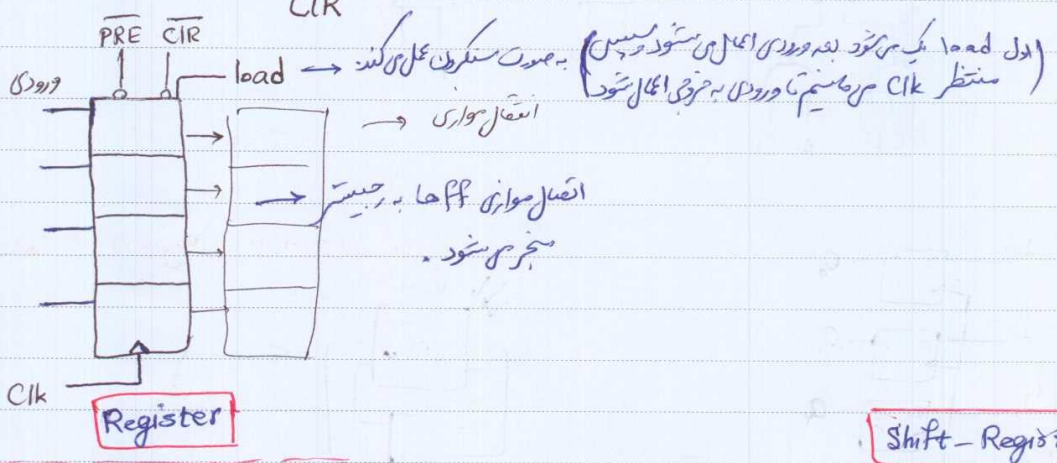 ClR
PRE ClR
ورودی
load → به صورت سنکرون عمل می‌کند: (اول load یک می‌شود بعد ورودی اعمال می‌شود و سپس
منتظر Clk می‌مانیم تا ورودی به خروجی اعمال شود)
→ انتقال موازی
اتصال موازی ff ها به رجیستر
منجر می‌شود.
Clk
Register
Shift - Regis